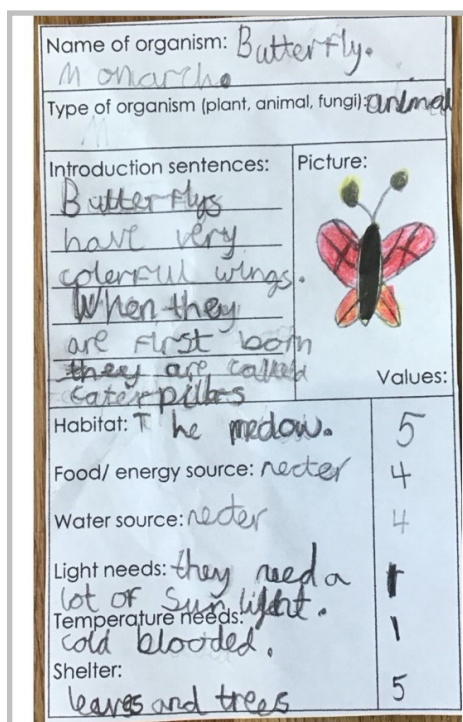 Name of organism: Butterfly.
Monarch.
Type of organism (plant, animal, fungi): animal
Introduction sentences:
Butterflys
have very
colerful wings.
When they
are first born
they are called
caterpilles
Picture:
Values:
Habitat: The medow. 5
Food/ energy source: necter 4
Water source: necter 4
Light needs: they need a
lot of sunlight. 1
Temperature needs:
cold blooded. 1
Shelter:
leaves and trees 5